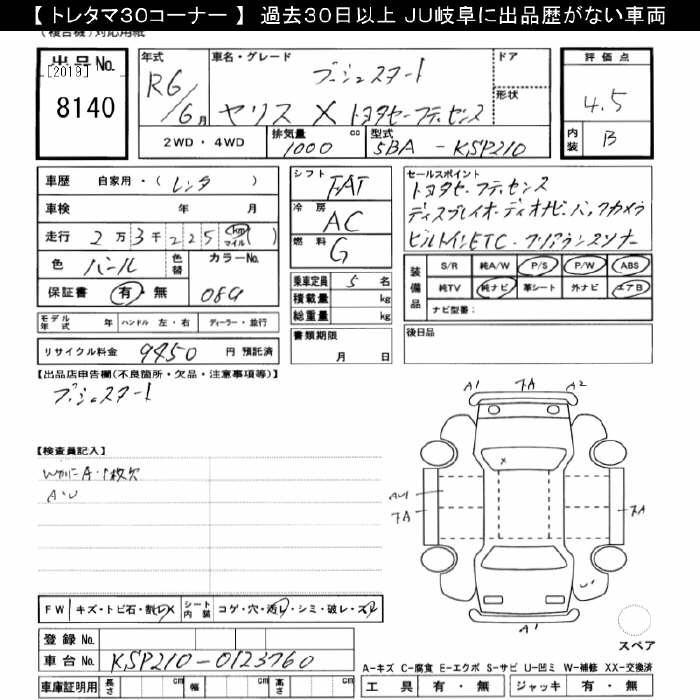 【 トレタマ30コーナー 】 過去30日以上 JU岐阜に出品歴がない車両
(複合機)対応用紙
出品No.
[2019]
8140
年式
R6/6月
車名・グレード
プッシュスタート
ヤリス X トヨタセーフティセンス
ドア
形状
2WD・4WD
排気量
1000 cc
型式
5BA - KSP210
評価点
4.5
内装
B
車歴 自家用・( レンタ )
車検 年 月
走行 2万3千225 (km マイル)( )
色 パール 色替 カラーNo.
保証書 有・無 089
モデル年式 年 ハンドル 左・右 ディーラー・並行
リサイクル料金 9450 円 預託済
シフト FAT
冷房 AC
燃料 G
乗車定員 5 名
積載量 kg
総重量 kg
書類期限
月 日
セールスポイント
トヨタセーフティセンス
ディスプレイオーディオナビ・バックカメラ
ビルトインETC・クリアランスソナー
装備品
S/R 純A/W P/S P/W ABS
純TV 純ナビ 革シート 外ナビ エアB
ナビ型番:
後日品
【出品店申告欄(不良箇所・欠品・注意事項等)】
プッシュスタート
【検査員記入】
A・U
A1 FA A2
X
AU1
FA
FA
U1
A1
スペア
FW キズ・トビ石・割レX シート内装 コゲ・穴・汚レ・シミ・破レ・スレ
登録 No.
車台 No. KSP210-0123760
車庫証明用 長さ cm 幅 cm 高さ cm
A-キズ C-腐食 E-エクボ S-サビ U-凹ミ W-補修 XX-交換済
工具 有・無 ジャッキ 有・無